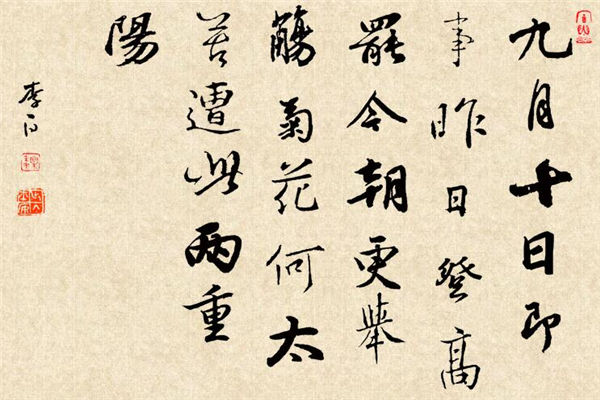 九月十日即
事昨日登高
罷今朝更舉
觴菊花何太
苦遭此兩重
陽
李白